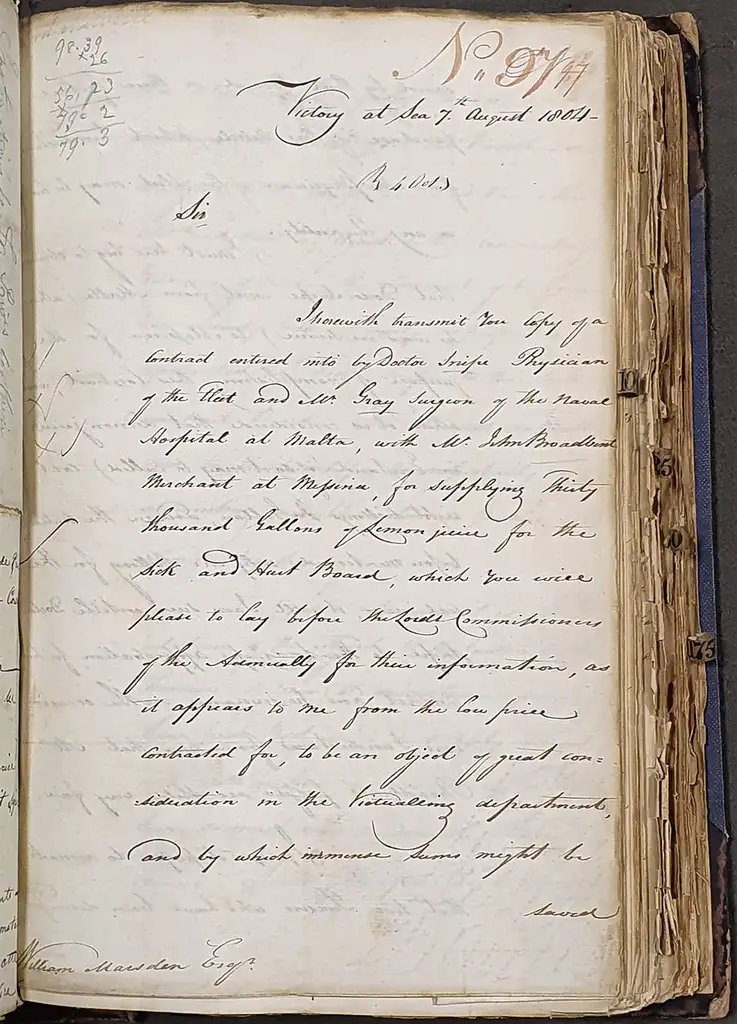 98.39
×26
56.23
79.2
79.3
No. 97
Victory at Sea 7th August 1804-
R 4 Octr
Sir
I herewith transmit You Copy of a
Contract entered into by Doctor Snipe Physician
of the Fleet and Mr. Gray Surgeon of the Naval
Hospital at Malta, with Mr. John Broadbent
Merchant at Messina, for supplying Thirty
thousand Gallons of Lemon juice for the
Sick and Hurt Board, which You will
please to lay before the Lords Commissioners
of the Admiralty for their information, as
it appears to me from the low price
Contracted for, to be an object of great con=
sideration in the Victualling department,
and by which immense Sums might be
saved
William Marsden Esqr.
10
25
50
175